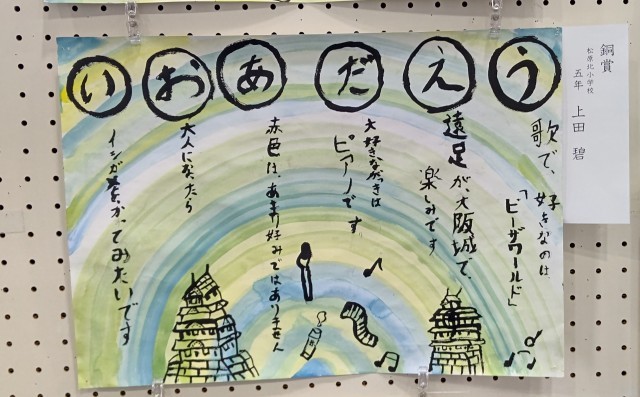 銅賞
松原北小学校
五年 上田 碧
う
歌で、好きなのは、
「ビーザワールド」
え
遠足が大阪城で、
楽しみです
だ
大好きながっきは
ピアノです。
あ
赤色は、あまり好みではありません
お
大人になったら
い
かってみたいです